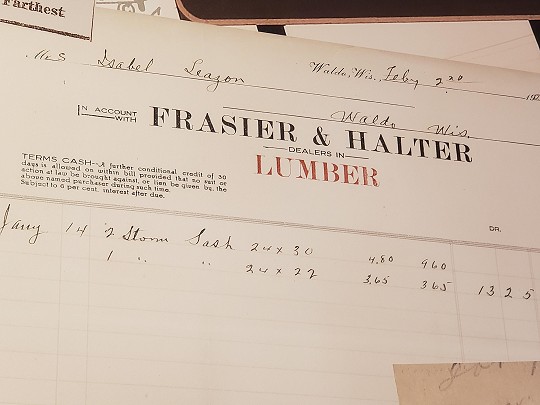 Farthest
Mrs Isabel Leazon Waldo, Wis, Feby 2nd 19
Waldo Wis.
IN ACCOUNT WITH FRASIER & HALTER
DEALERS IN
LUMBER
TERMS CASH--A further conditional credit of 30
days is allowed on within bill provided that no suit or
action at law be brought against, or lien be given by, the
above named purchaser during such time.
Subject to 6 per cent. interest after due.
DR.
Jany 14 2 Storm Sash 24 x 30 4.80 9 60
1 " " 24 x 22 3.65 3 65 13 2 5